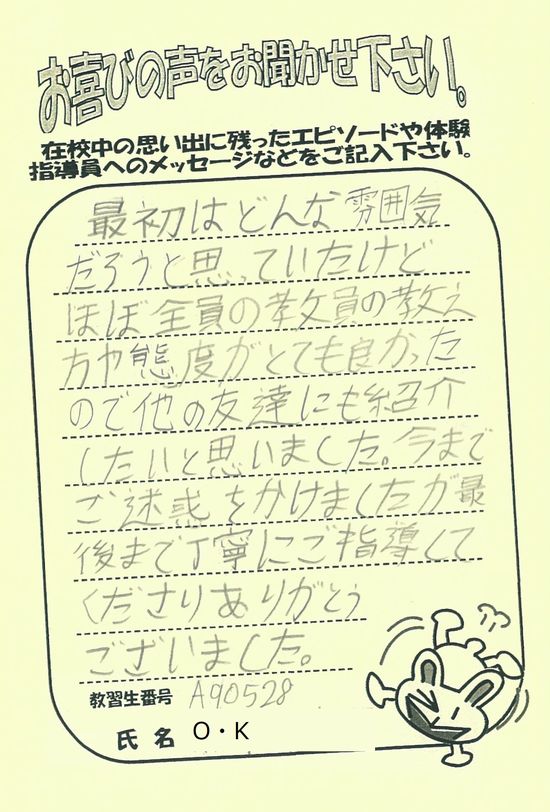 お喜びの声をお聞かせ下さい。
在校中の思い出に残ったエピソードや体験
指導員へのメッセージなどをご記入下さい。
最初はどんな雰囲気
だろうと思っていたけど
ほぼ全員の教員の教え
方や態度がとても良かった
ので他の友達にも紹介
したいと思いました。今まで
ご迷惑をかけましたが最
後まで丁寧にご指導して
くださりありがとう
ございました。
教習生番号 A90528
氏名 O・K